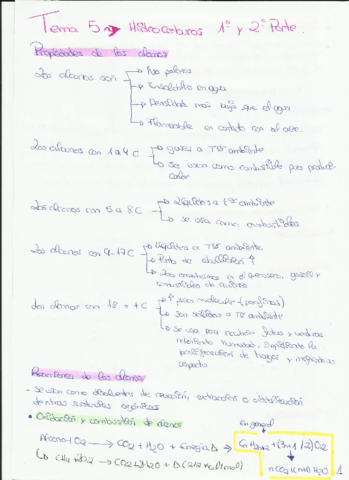 Tema 5 → Hidrocarburos 1ª y 2ª Parte.
Propiedades de los alcanos
Los alcanos son → No polares
→ Insolubles en agua
→ Densidad más baja que el agua
→ Flameable en contacto con el aire.
Los alcanos con 1 a 4 C → gases a Tº ambiente
→ Se usan como combustible para producir calor
Los alcanos con 5 a 8 C → Líquidos a tº ambiente
→ se usa como combustibles
Los alcanos con 9-17 C → Líquidos a Tº ambiente.
→ Punto de ebullición ↑
→ Los encontramos en el queroseno, gasoil y
combustibles de aviones
Los alcanos con 18 o + C → ↑ peso molecular (parafinas)
→ Son sólidos a Tº ambiente
→ Se usa para recubrir frutas y verduras
reteniendo humedad, impidiendo la
proliferación de hongos y mejorando
aspecto
Reacciones de los alcanos
- Se usan como disolventes de reacción, extracción o cristalización
de otras sustancias orgánicas
• Oxidación y combustión de alcanos
en general
Alcano + O2 → CO2 + H2O + Energía Δ
CnH2n+2 + (3n+1/2)O2
↳ CH4 + 2O2 → CO2 + 2H2O + Δ (212 kcal/mol)
nCO2 + (n+1) H2O
1